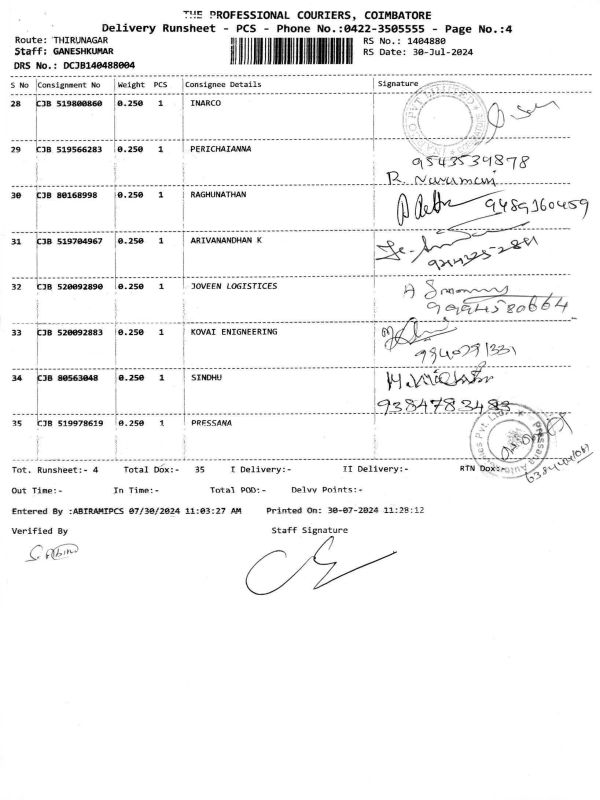 THE PROFESSIONAL COURIERS, COIMBATORE
Delivery Runsheet - PCS - Phone No.:0422-3505555 - Page No.:4
Route: THIRUNAGAR RS No.: 1404880
Staff: GANESHKUMAR RS Date: 30-Jul-2024
DRS No.: DCJB140488004
S No Consignment No Weight PCS Consignee Details Signature
28 CJB 519800860 0.250 1 INARCO
29 CJB 519566283 0.250 1 PERICHAIANNA 9543539878
R. Navamani
30 CJB 80168998 0.250 1 RAGHUNATHAN 9489160459
31 CJB 519704967 0.250 1 ARIVANANDHAN K
32 CJB 520092890 0.250 1 JOVEEN LOGISTICES
9994580664
33 CJB 520092883 0.250 1 KOVAI ENIGNEERING
9940791331
34 CJB 80563048 0.250 1 SINDHU
9384783483
35 CJB 519978619 0.250 1 PRESSANA
Pressana Auto Pvt. Ltd.
Tot. Runsheet:- 4 Total Dox:- 35 I Delivery:- II Delivery:- RTN Dox:-
Out Time:- In Time:- Total POD:- Delvy Points:-
Entered By :ABIRAMIPCS 07/30/2024 11:03:27 AM Printed On: 30-07-2024 11:28:12
Verified By Staff Signature